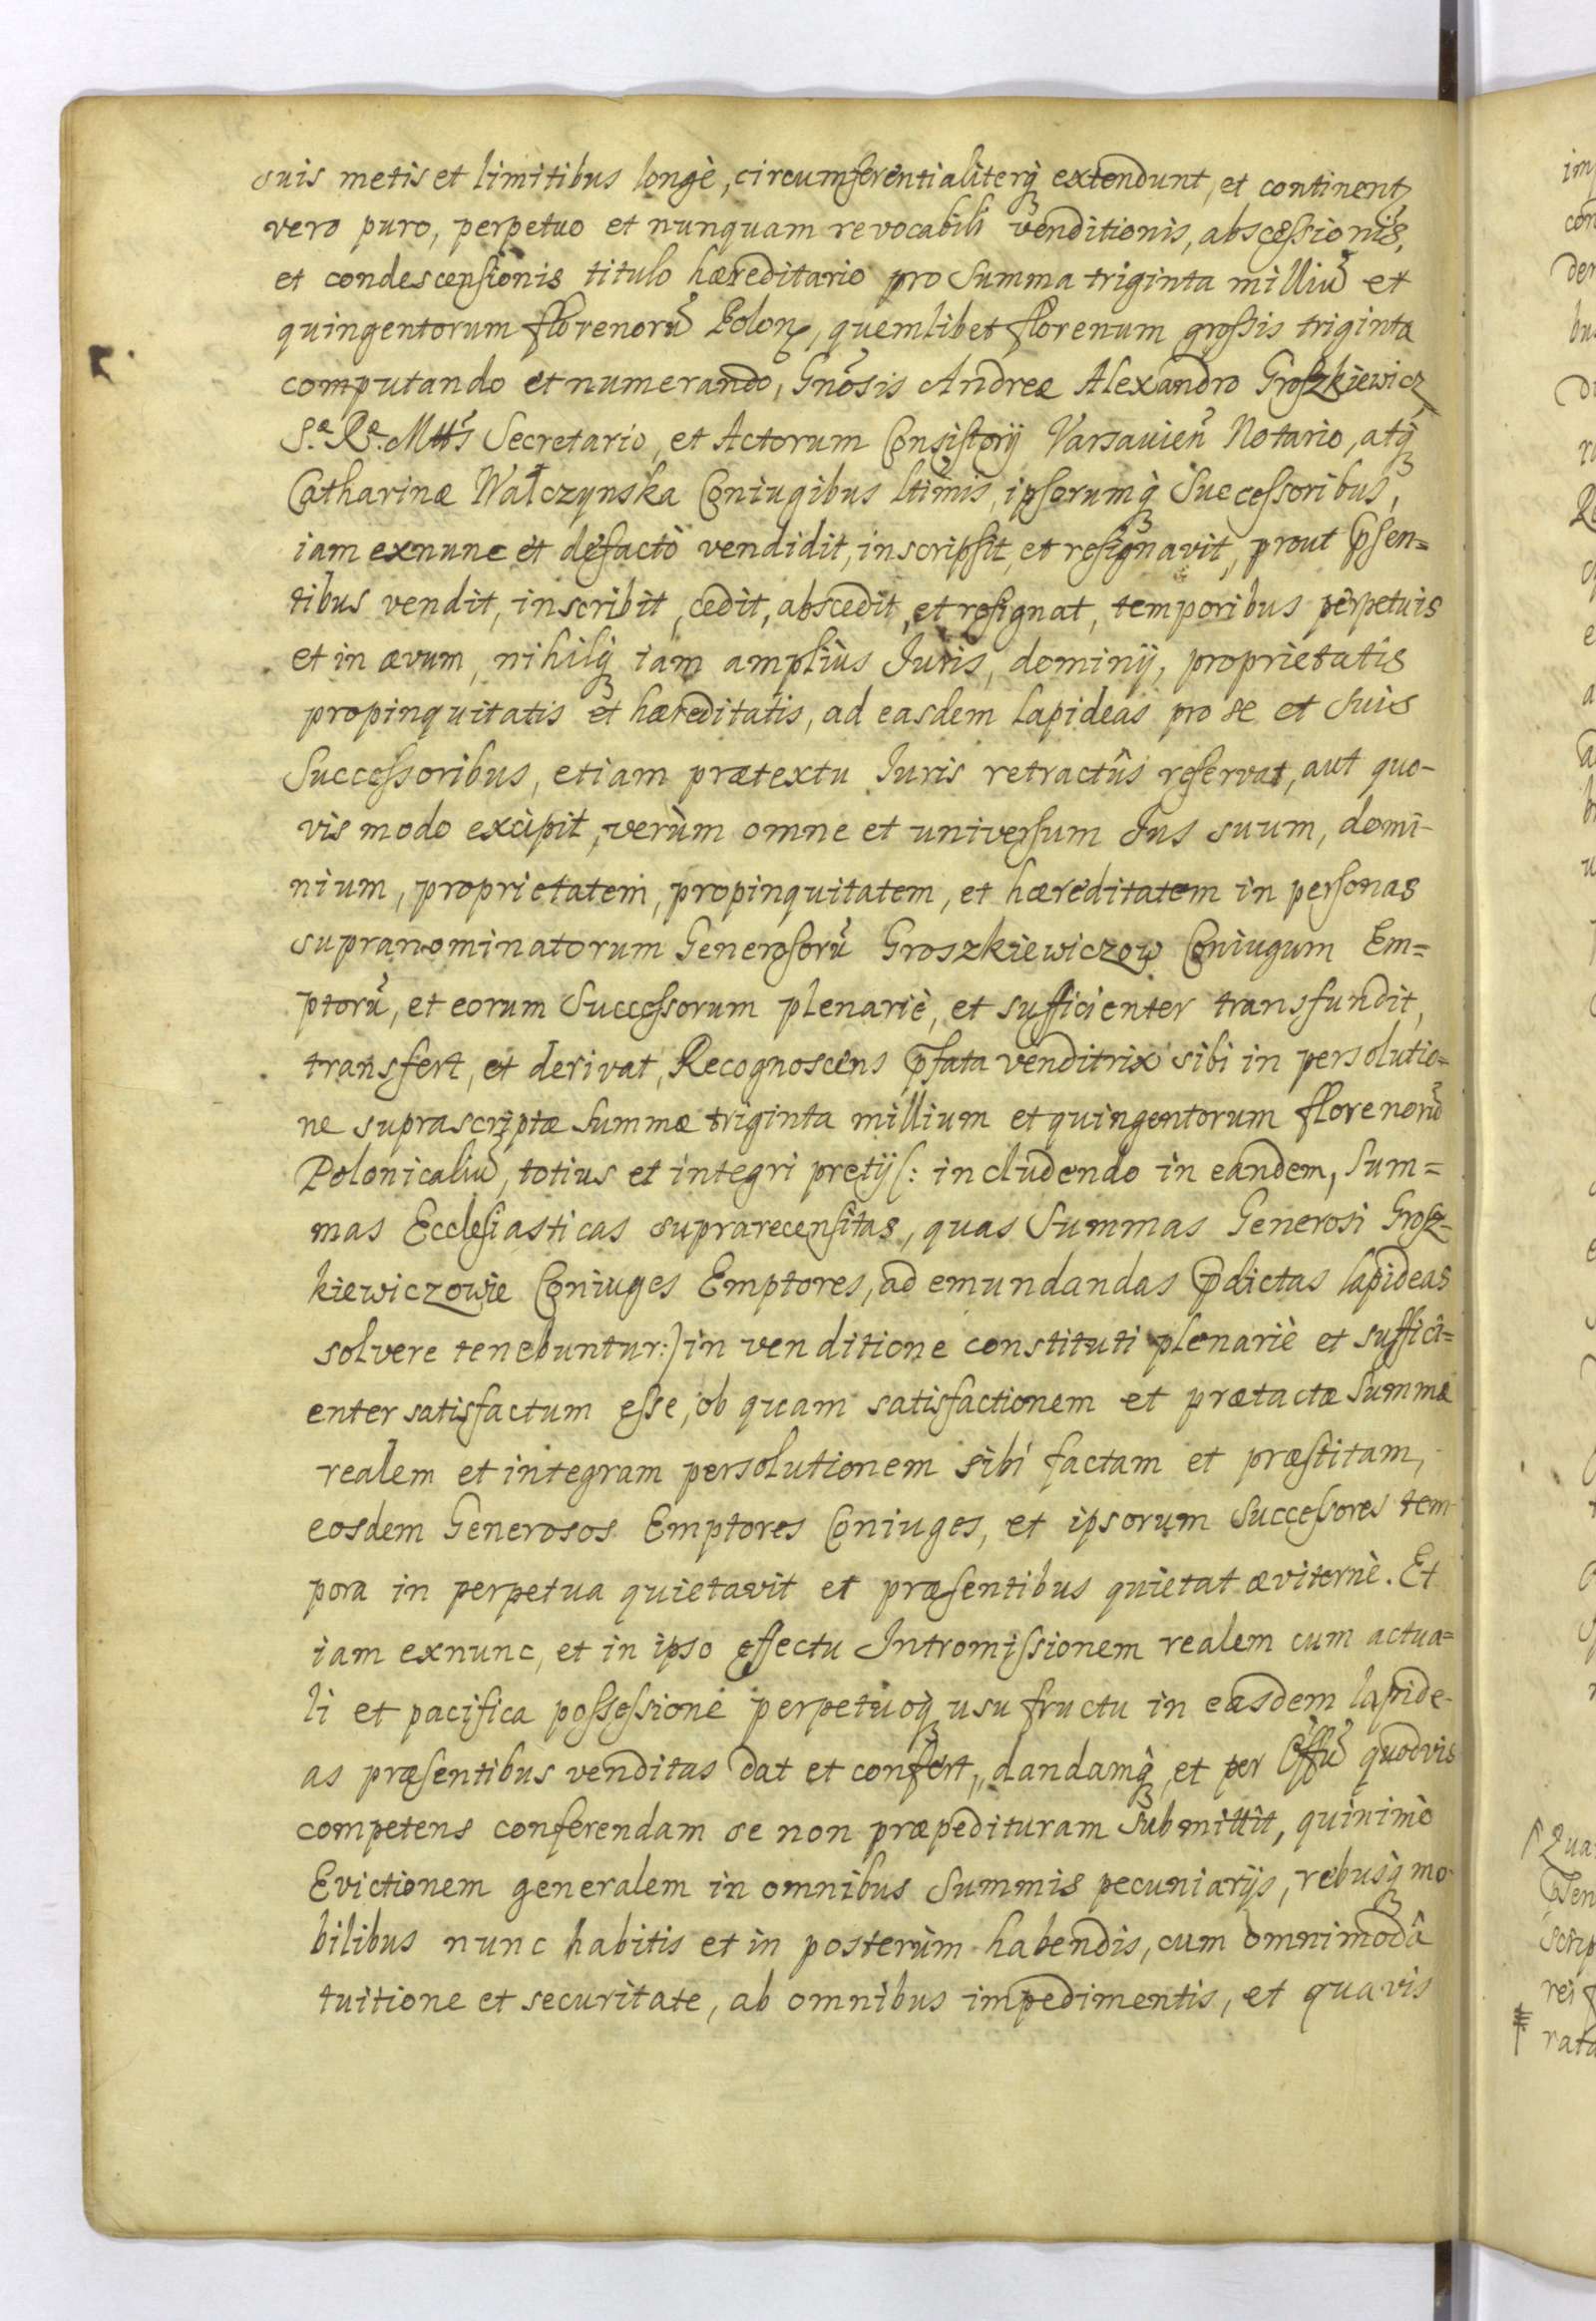 suis metis et limitibus longè, circumferentialiterq́ꝫ extendunt, et continent,
vero puro, perpetuo et nunquam revocabili venditionis, abscessionis,
et condescensionis titulo hæreditario pro summa triginta milliū et
quingentorum florenorū Polon, quemlibet florenum grossis triginta
computando et numerando, Gnõsis Andreæ Alexandro Groszkiewicz
S.æ R.æ Mttis Secretario, et Actorum Consistorij Varsavień Notario, atq́ꝫ
Catharinæ Wałczynska Coniugibus ltimis, ipsorumq́ꝫ Successoribus,
iam exnunc et defactò vendidit, inscripsit, et resignavit, prout p̃sen=
tibus vendit, inscribit, cedit, abscedit, et resignat, temporibus perpetuis
et in ævum, nihilq́ꝫ iam ampliùs Iuris, dominij, proprietatis
propinquitatis et hæreditatis, ad easdem lapideas pro se et suis
Successoribus, etiam prætextu Iuris retractûs reservat, aut quo-
vis modo excipit, verùm omne et universum Ius suum, domi-
nium, proprietatem, propinquitatem, et hæreditatem in personas
supranominatorum Generosorū Groszkiewiczow Coniugum Em=
ptorū, et eorum Successorum plenariè, et sufficienter transfundit,
transfert, et derivat, Recognoscens p̃fata venditrix sibi in persolutio=
ne suprascriptæ summæ triginta millium et quingentorum florenorū
Polonicaliū, totius et integri pretij (: includendo in eandem, Sum=
mas Ecclesiasticas suprarecensitas, quas Summas Generosi Grosz-
kiewiczowie Coniuges Emptores, ad emundandas p̃dictas lapideas
solvere tenebuntur:) in venditione constituti plenariè et suffici=
enter satisfactum esse, ob quam satisfactionem et prætactæ summæ
realem et integram persolutionem sibi factam et præstitam,
eosdem Generosos Emptores Coniuges, et ipsorum Successores tem-
pora in perpetua quietavit et præsentibus quietat æviternè. Et
iam exnunc, et in ipso effectu Intromissionem realem cum actua=
li et pacifica possessione perpetuoq́ꝫ usufructu in easdem lapide-
as præsentibus venditas dat et confert, dandamq́ꝫ, et per Offū quodvis
competens conferendam se non præpedituram submittit, quinimò
Evictionem generalem in omnibus Summis pecuniarijs, rebusq́ꝫ mo-
bilibus nunc habitis et in posterùm habendis, cum omnimodâ
tuitione et securitate, ab omnibus impedimentis, et quavis